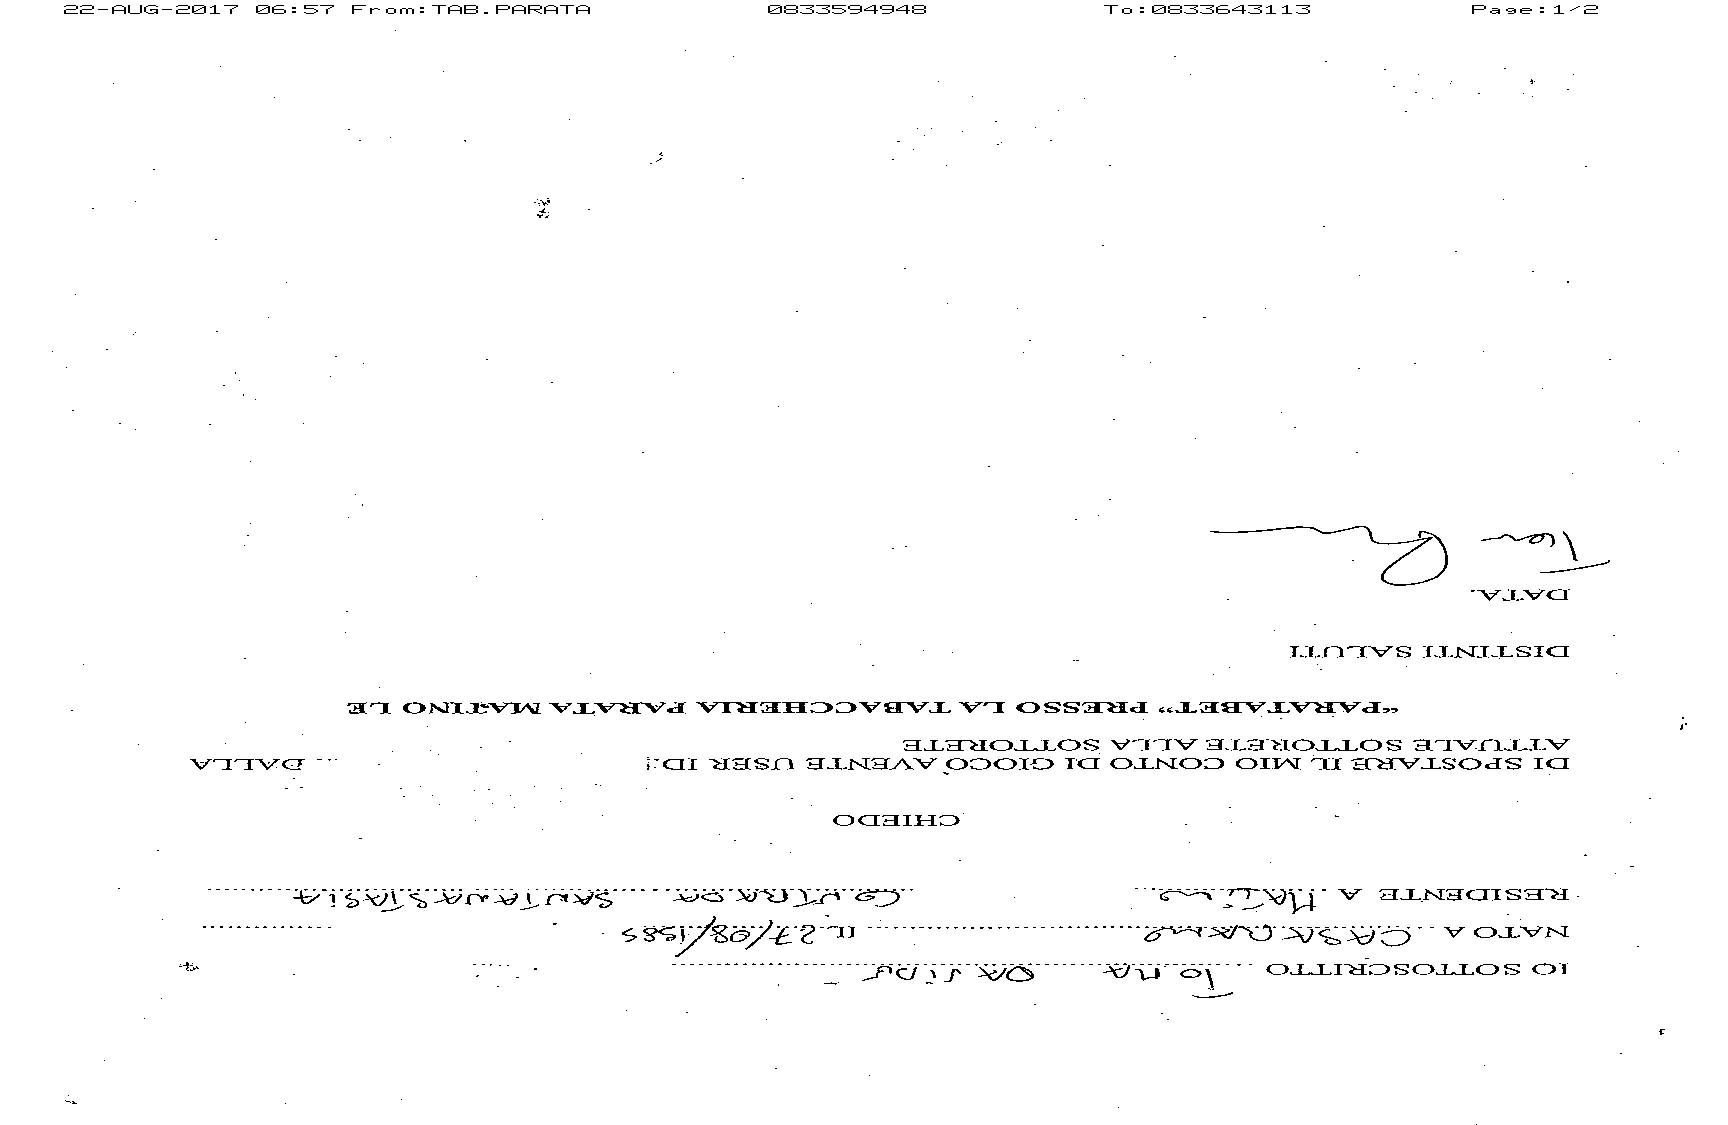 22-AUG-2017 06:57 From:TAB.PARATA 0833594948 To:0833643113 Page:1/2
IO SOTTOSCRITTO TOMA
NATO A CASARANO IL 27/08/1985
RESIDENTE A MATINO CONTRADA SANTANASTASIA
CHIEDO
DI SPOSTARE IL MIO CONTO DI GIOCO AVENTE USER ID: ... DALLA
ATTUALE SOTTORETE ALLA SOTTORETE
“PARATABET” PRESSO LA TABACCHERIA PARATA MATINO LE
DISTINTI SALUTI
DATA.